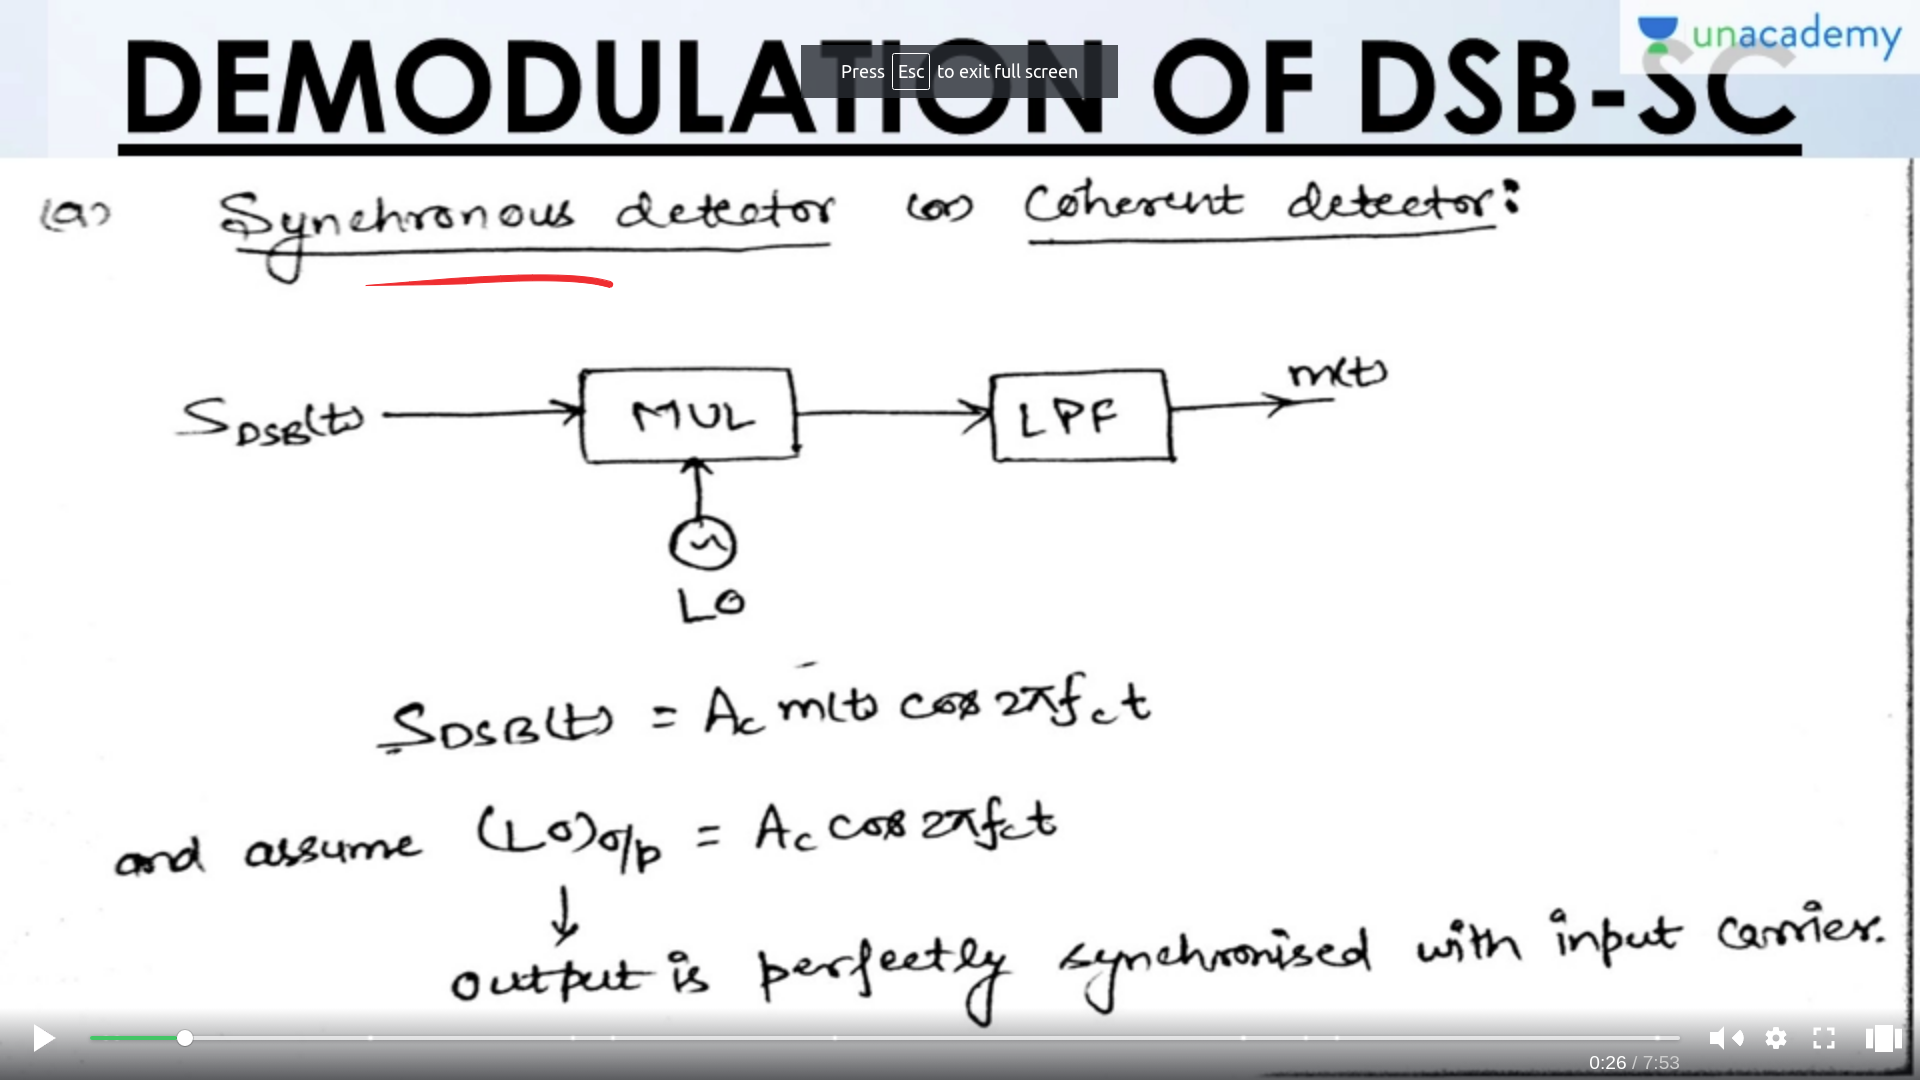 unacademy
DEMODULATION OF DSB-SC
Press Esc to exit full screen
(a) Synchronous detector (or) Coherent detector:
S_DSB(t) MUL LPF m(t)
LO
S_DSB(t) = Ac m(t) cos 2πfct
and assume (LO)o/p = Ac cos 2πfct
↓
output is perfectly synchronised with input carrier.
0:26 / 7:53